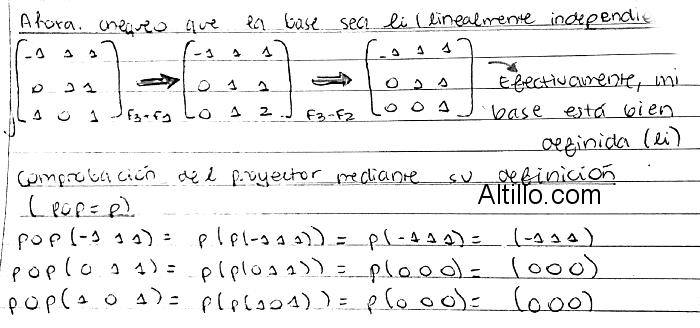 Ahora. chequeo que la base sea li (linealmente independie
-1 1 1 -1 1 1 -1 1 1
0 1 1 0 1 1 0 1 1 Efectivamente, mi
1 0 1 F3-F1 0 1 2 F3-F2 0 0 1 base está bien
definida (li)
Comprobación del proyector mediante su definición
Altillo.com
(pop = p)
pop(-1 1 1) = p(p(-1 1 1)) = p(-1 1 1) = (-1 1 1)
pop(0 1 1) = p(p(0 1 1)) = p(0 0 0) = (0 0 0)
pop(1 0 1) = p(p(1 0 1)) = p(0 0 0) = (0 0 0)